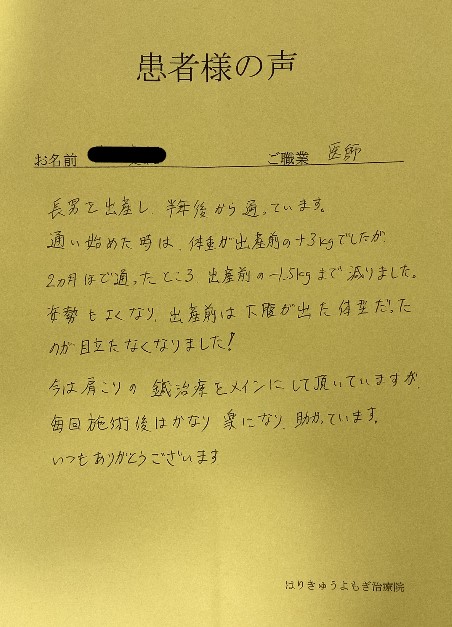 患者様の声
お名前 ご職業 医師
長男を出産し、半年後から通っています。
通い始めた時は、体重が出産前の+3kgでしたが、
2ヵ月ほど通ったところ 出産前の-1.5kgまで減りました。
姿勢もよくなり、出産前は下腹が出た体型だった
のが目立たなくなりました!
今は肩こりの鍼治療をメインにして頂いていますが、
毎回施術後はかなり楽になり、助かっています。
いつもありがとうございます
はりきゅうよもぎ治療院